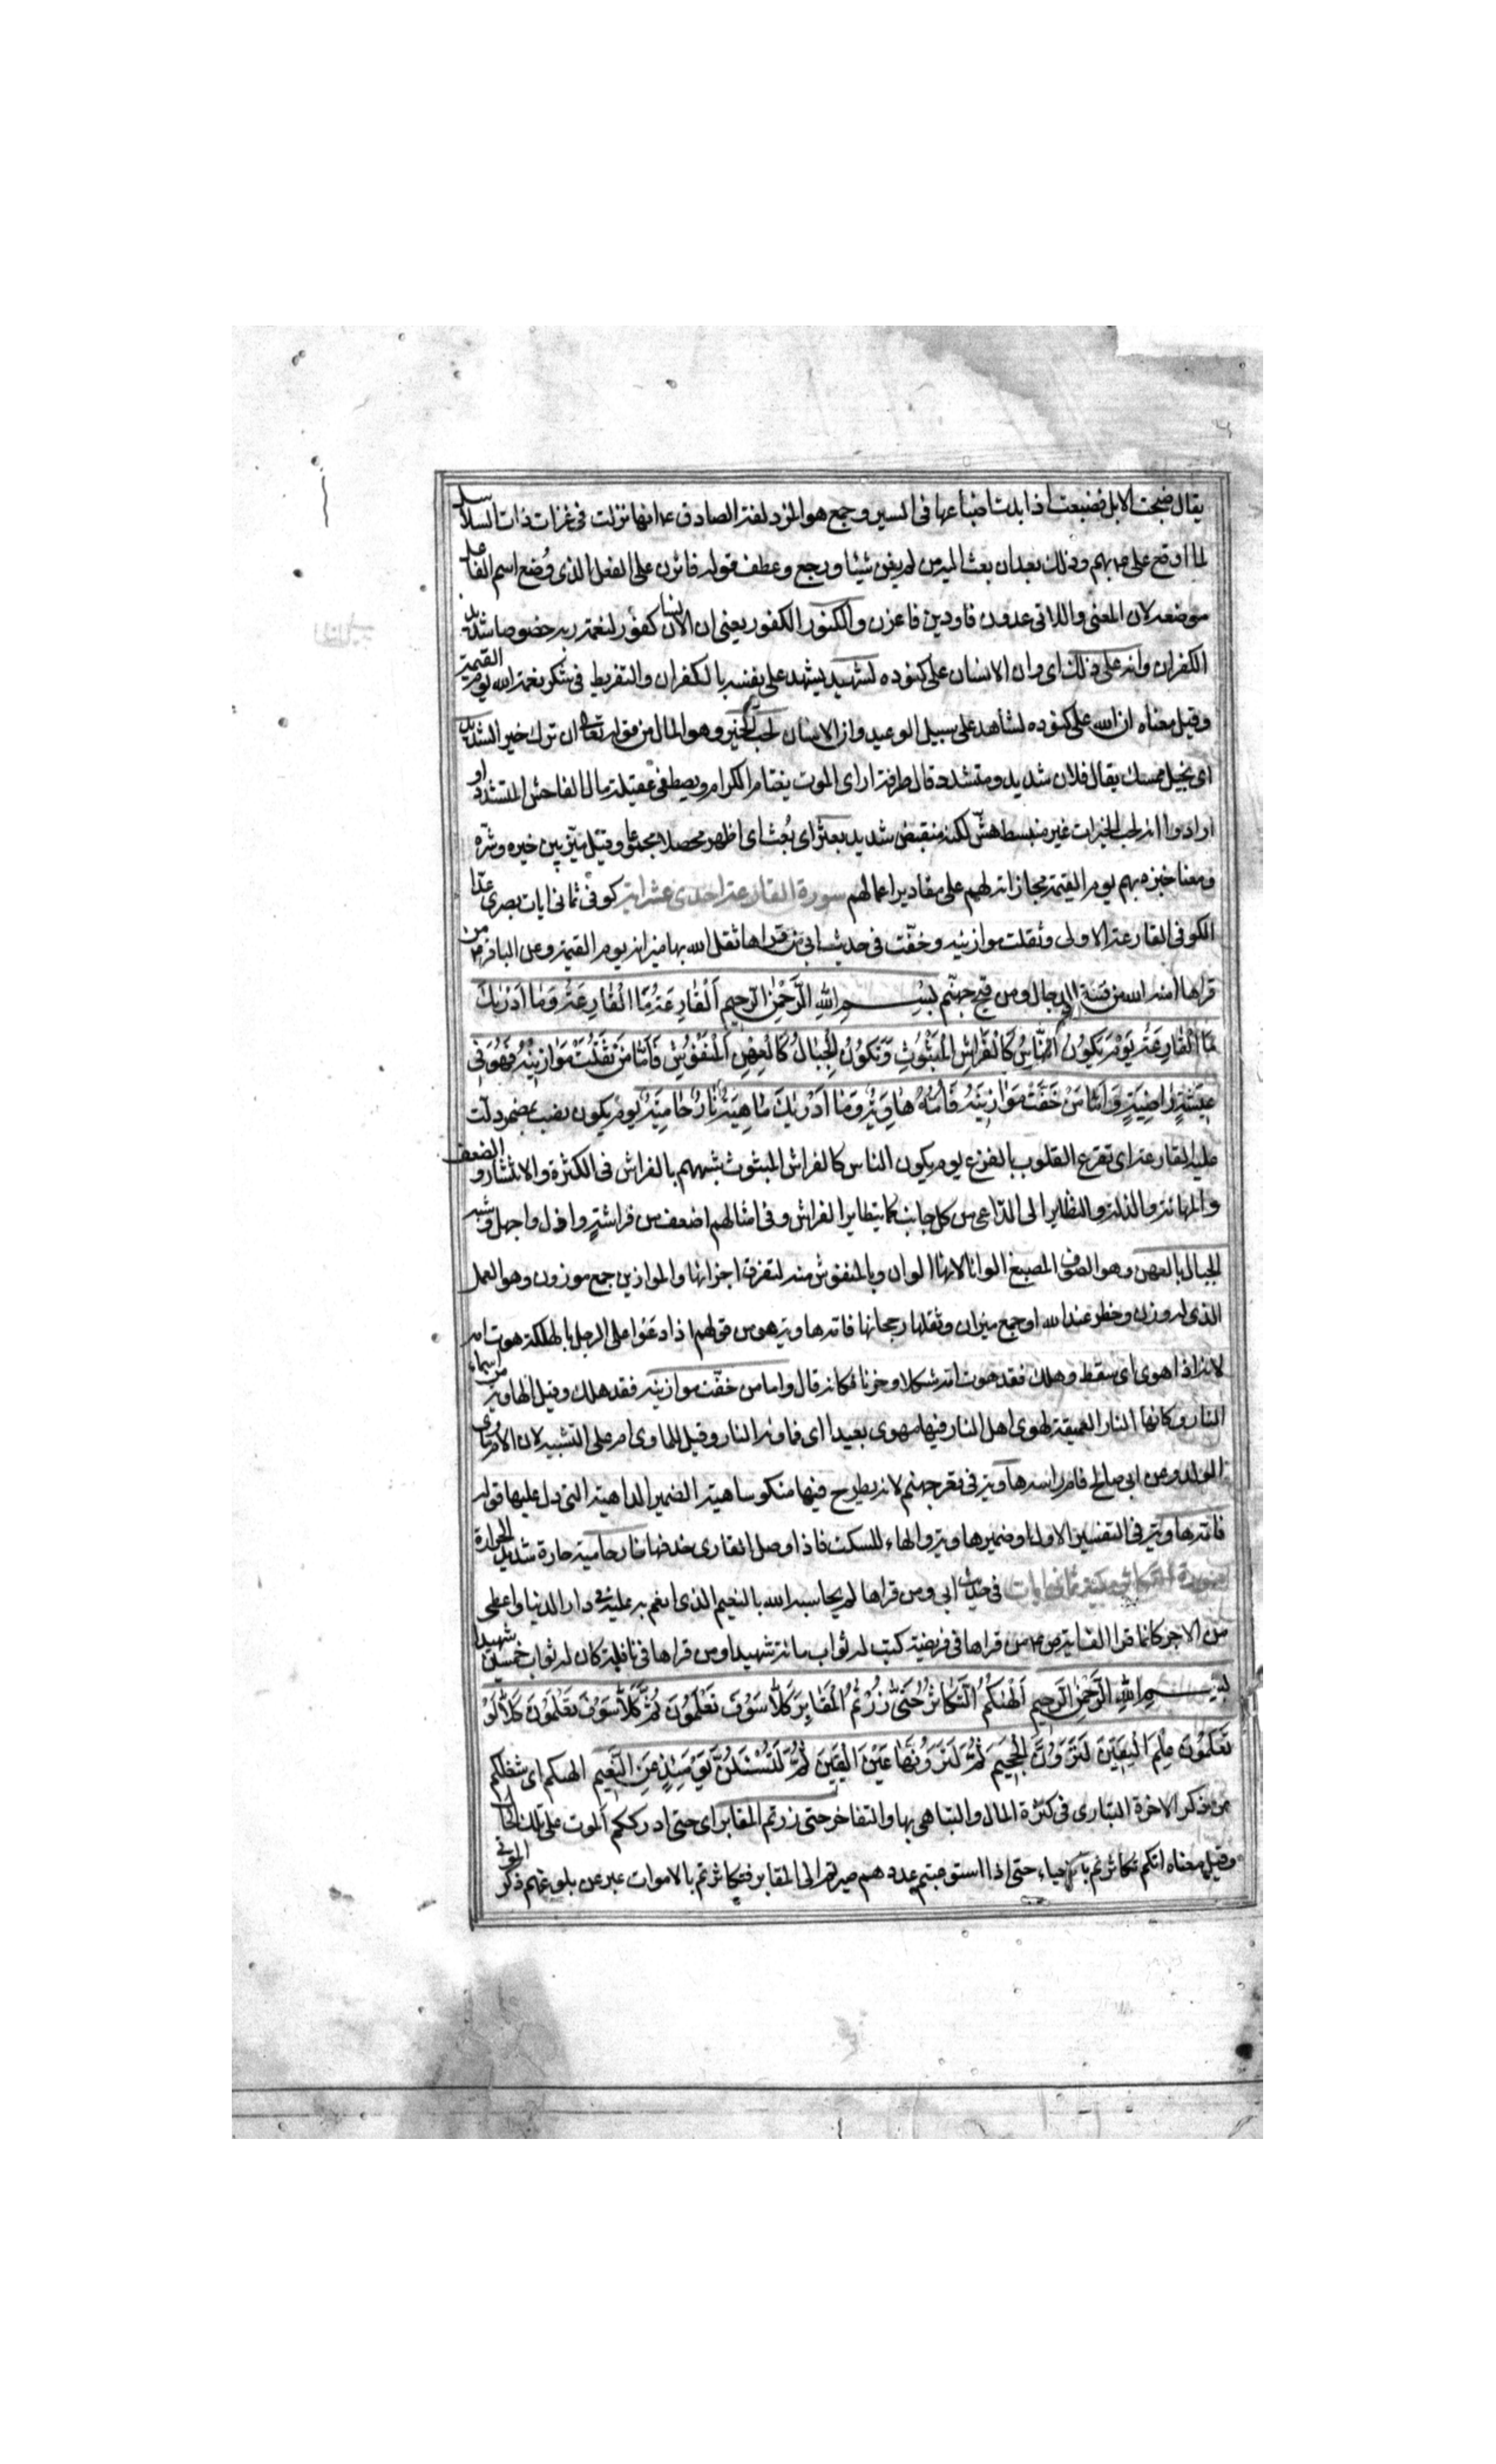 يقال ضبحت الابل وضبعت اذا مدت اضباعها فى السير وجمع هو المزدلفة الصادق ع انها نزلت فى غزات ذات السلاسل
لما اوقع على ع بهم وذلك بعد ان بعث اليهم من لم يغن شيئا ورجع وعطف قوله فاثرن على الفعل الذى وُضع اسم الفاعل
موضعه لان المعنى واللاتى عدون فاورين فاغرن والكنود الكفور يعنى ان الانسان كفور لنعمة ربه خصوصا شديد
الكفران وانه على ذلك اى وان الانسان على كنوده لشهيد يشهد على نفسه بالكفران والتفريط فى شكر نعمة الله يوم القيمة
وقيل معناه ان الله على كنوده لشاهد على سبيل الوعيد وان الانسان لحب الخير وهو المال من قوله تعالى ان ترك خير الشديد
اى بخيل ممسك يقال فلان شديد ومتشدد قال طرفة ارى الموت يعتام الكرام ويصطفى عقيلة مال الفاحش المتشدد او
اراد وا انه لحب الخيرات غير منبسط هشّ لكنه منقبض شديد بعثر اى بُعث اى اظهر محصلا مجموعا وقيل ميّز بين خيره وشرّه
ومعنا خبره بهم يوم القيمة مجازاته لهم على مقادير اعمالهم سورة القارعة احدى عشر اية كوفى ثمانى ايات بصرى عدّا
الكوفى القارعة الاولى وثقلت موازينه وخفّت فى حديث ابى من قراها ثقل الله بها ميزانه يوم القيمة وعن الباقر ع من
قراها امنه الله من فتنة الدجال ومن قيح جهنّم بِسْمِ اللهِ الرَّحْمٰنِ الرَّحيمِ اَلْقٰارِعَةُ مَا الْقٰارِعَةُ وَمٰا اَدْرٰيكَ
مَا الْقٰارِعَةُ يَوْمَ يَكُونُ النّٰاسُ كَالْفَرٰاشِ الْمَبْثُوثِ وَتَكُونُ الْجِبٰالُ كَالْعِهْنِ الْمَنْفُوشِ فَاَمّٰا مَنْ ثَقُلَتْ مَوٰازِينُهُ فَهُوَ فِى
عِيشَةٍ رٰاضِيَةٍ وَاَمّٰا مَنْ خَفَّتْ مَوٰازِينُهُ فَاُمُّهُ هٰاوِيَةٌ وَمٰا اَدْرٰيكَ مٰاهِيَهْ نٰارٌ حٰامِيَةٌ يوم يكون نصب بمضمر دلّت
عليه القارعة اى تقرع القلوب بالفزع يوم يكون الناس كالفراش المبثوث شبههم بالفراش فى الكثرة والانتشار والضعف
والمهانة والذلة والتطاير الى الدّاعى من كل جانب كما يتطاير الفراش وفى امثالهم اضعف من فراشةٍ واذل واجهل وشبه
الجبال بالعهن وهو الصوف المصبغ الوانا لانها الوان وبالمنفوش منه لتفرق اجزائها والموازين جمع موزون وهو العمل
الذى له وزن وخطر عند الله او جمع ميزان وثقلها رجحانها فامه هاوية هو من قولهم اذا دعوا على الرجل بالهلكة هوت امه
لانه اذا هوى اى سقط وهلك فقد هوت امه ثكلا وحزنا فكانه قال واما من خفّت موازينه فقد هلك وقيل الهاوية من اسماء
النار وكانها النار العميقة لهوى اهل النار فيها مهوى بعيدا اى فماويه النار وقيل للماوى ام على التشبيه لان الام ماوى
الولد وعن ابى صالح فام راسه هاوية فى قعر جهنم لانه يطرح فيها منكوسا هية الضمير الداهية التى دل عليها قوله
فامه هاوية فى التفسير الاول او ضمير هاوية والهاء للسكت فاذا وصل القارى حذفها نار حامية حارة شديد الحرارة
سورة التكاثر مكية ثمانى ايات فى حديث ابى ومن قراها لم يحاسبه الله بالنعيم الذى انعم به عليه فى دار الدنيا واعطى
من الاجر كانما قرا الف اية ص ع من قراها فى فريضة كتب له ثواب مائة شهيد ا ومن قراها فى نافلة كان له ثواب خمسين شهيدا
بِسْمِ اللهِ الرَّحْمٰنِ الرَّحيمِ اَلْهٰيكُمُ التَّكٰاثُرُ حَتّٰى زُرْتُمُ الْمَقٰابِرَ كَلّٰا سَوْفَ تَعْلَمُونَ ثُمَّ كَلّٰا سَوْفَ تَعْلَمُونَ كَلّٰا لَوْ
تَعْلَمُونَ عِلْمَ الْيَقِينَ لَتَرَوُنَّ الْجَحِيمَ ثُمَّ لَتَرَوُنَّهٰا عَيْنَ الْيَقِينَ ثُمَّ لَتُسْئَلُنَّ يَوْمَئِذٍ عَنِ النَّعِيمِ الهيكم اى شغلكم
عن ذكر الاخرة التبارى فى كثرة المال والتباهى بها والتفاخر حتى زرتم المقابر اى حتى ادرككم الموت على تلك الحال
وقيل معناه انكم تكاثرتم بالاحياء حتى اذا استوعبتم عددهم صرتم الى المقابر فتكاثرتم بالاموات عبر عن بلوغهم ذكر الموتى